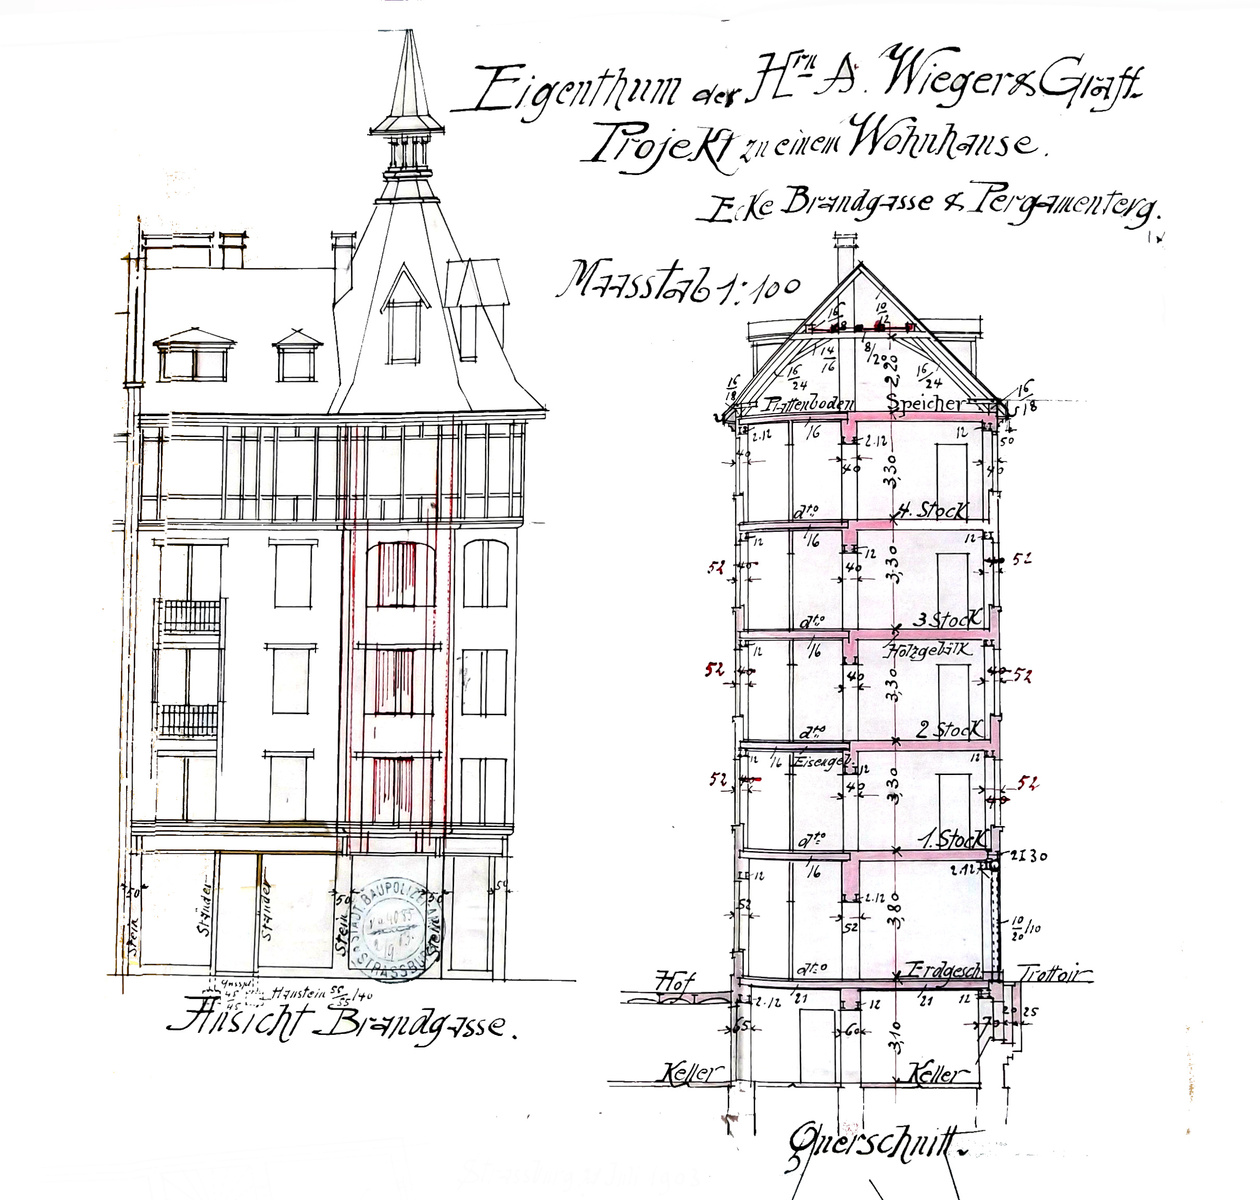 Eigenthum der Hrn A. Wieger & Graff.
Projekt zu einem Wohnhause.
Ecke Brandgasse & Pergamenterg.
Maasstab 1:100
16 10
12
14
16
8/20
16
24
2,20
16
24
16
18
16
18
Plattenboden Speicher
2.12 16 2.12 12 50
40 40 3,30 40
dto 4. Stock
12 16 12 12
52 40 40 3,30 52
dto 3 Stock
12 16 Holzgebälk 12
52 40 40 3,30 40 52
dto 2 Stock
12 16 Eisengeb. 12 12
52 40 40 3,30 40 52
dto 1. Stock
2I30
16 2.12
12 2.12
52 52 3,80 10/20/10
dto Erdgesch. Trottoir
Hof
2.12 21 12 21 12 20 25
65 60 3,10 70
Keller Keller
Querschnitt.
50 50 50
Stein Ständer Ständer Stein Stein
STADT. BAUPOLIZEI AMT
STRASSBURG
Haustein 55/55/40
Ansicht Brandgasse.